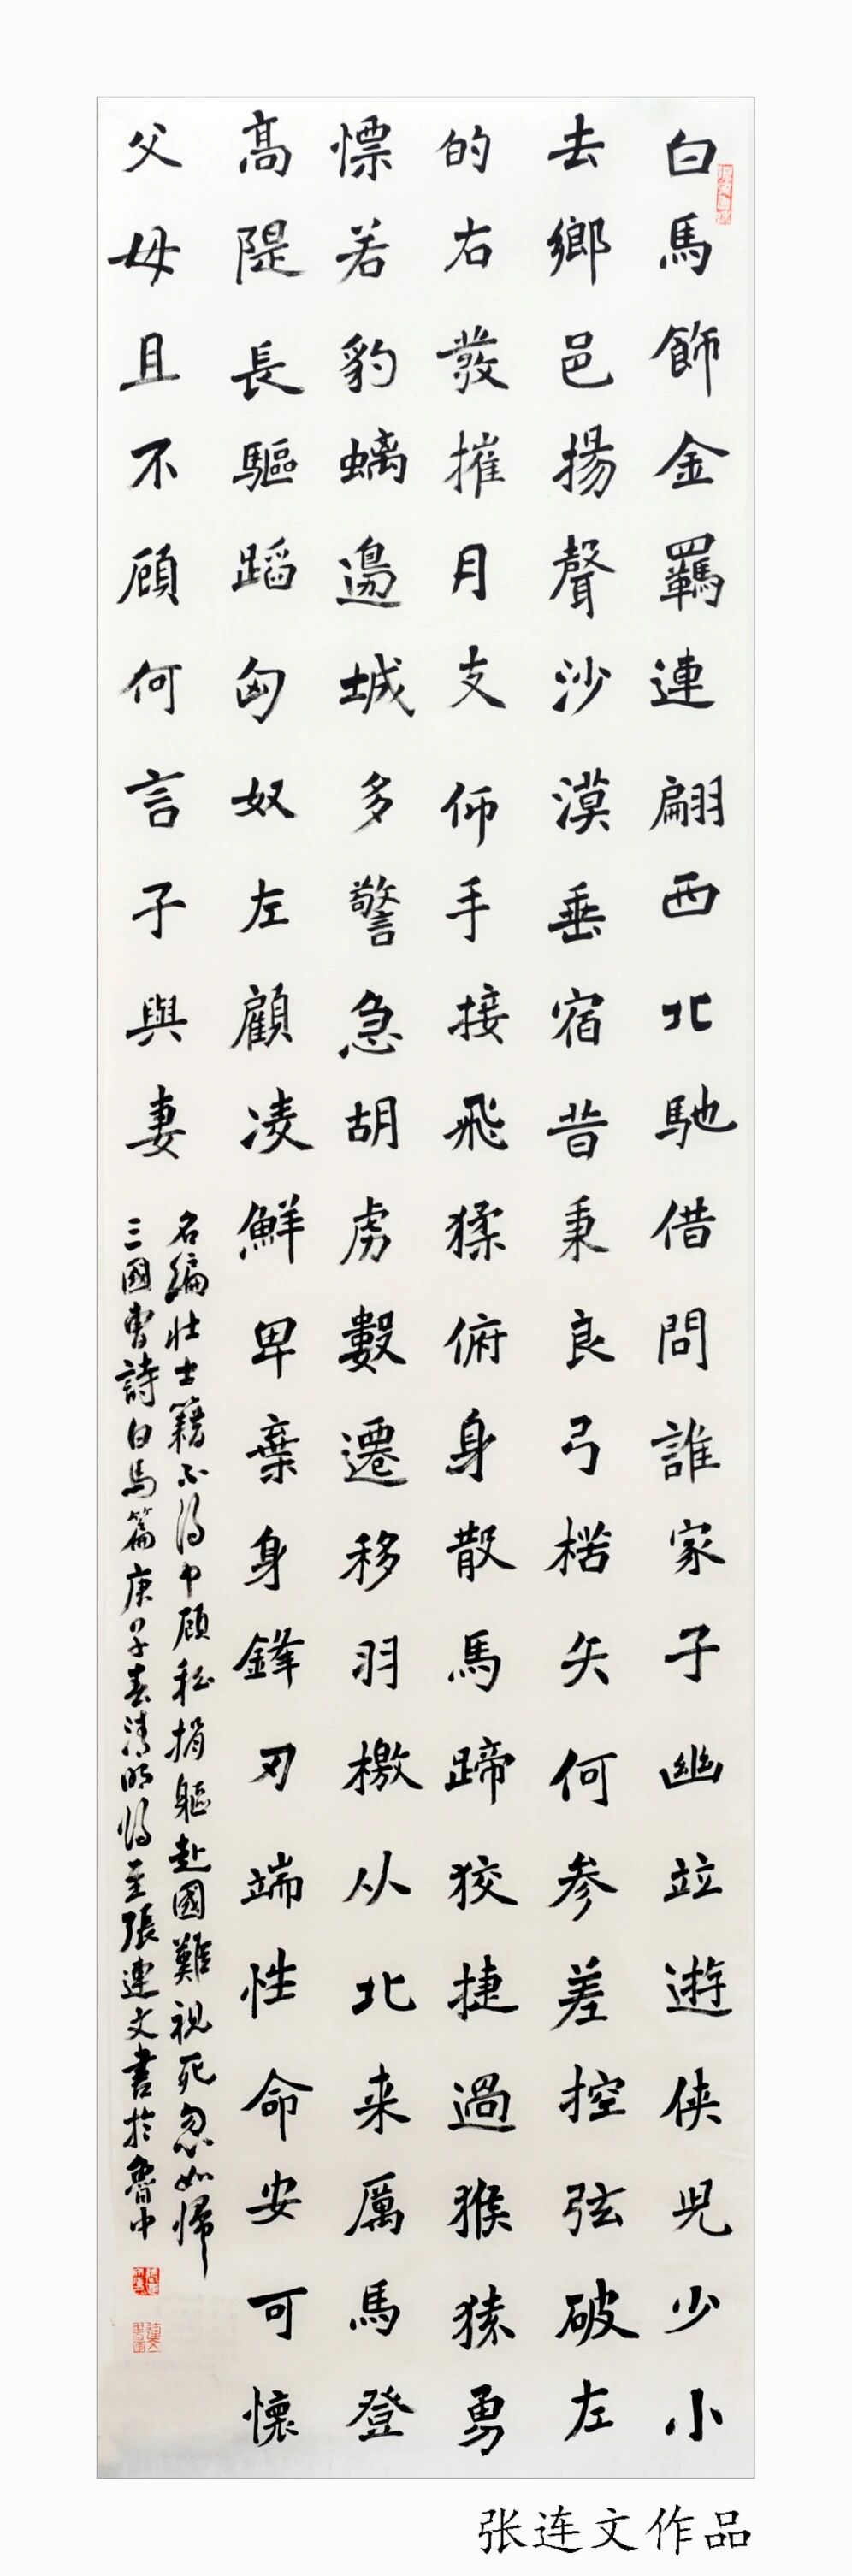 白馬飾金羈連翩西北馳借問誰家子幽竝遊侠兒少小
去鄉邑揚聲沙漠垂宿昔秉良弓楛矢何参差控弦破左
的右發摧月支仰手接飛猱俯身散馬蹄狡捷過猴猿勇
慓若豹螭邊城多警急胡虜數遷移羽檄从北来厲馬登
高隄長驅蹈匈奴左顧凌鮮卑棄身鋒刃端性命安可懷
父母且不顾何言子與妻
名編壯士籍不得中顾私捐軀赴國難視死忽如歸
三國曹詩白馬篇庚子春清明将至張連文書於魯中
张连文作品